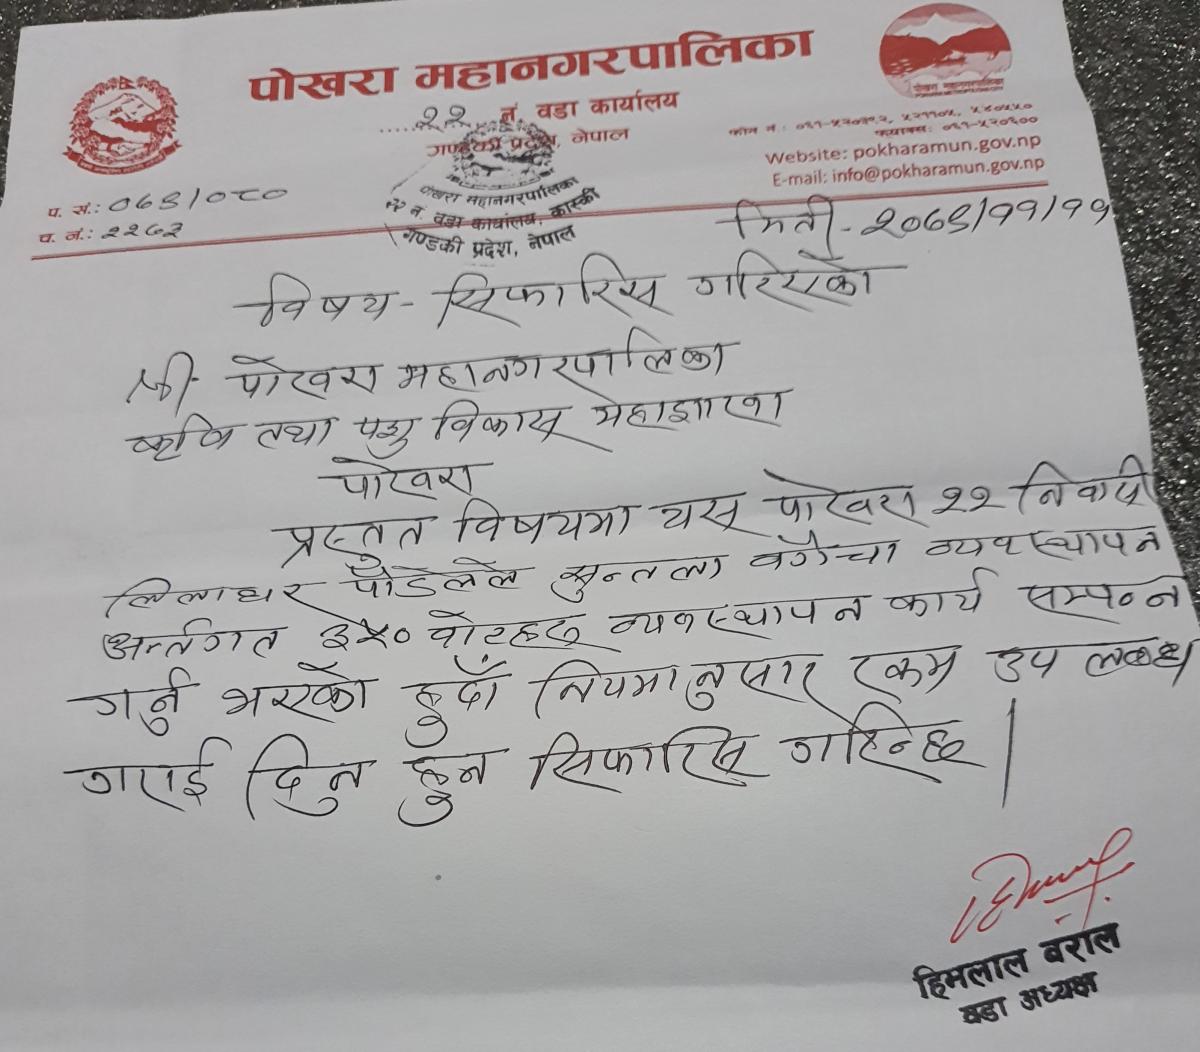 पोखरा महानगरपालिका
२२ नं वडा कार्यालय
गण्डकी प्रदेश, नेपाल
फोन नं : ०६१-५२०१९२, ५२११०५, ५४०५५०
फ्याक्स: ०६१-५२०६००
Website: pokharamun.gov.np
E-mail: info@pokharamun.gov.np
पोखरा महानगरपालिका
२२ नं. वडा कार्यालय, कास्की
गण्डकी प्रदेश, नेपाल
प. सं.: ०७९/०८०
च. नं.:
मिती - २०७९/११/११
विषय - सिफारिस गरिएको
श्री पोखरा महानगरपालिका
कृषि तथा पशु विकास महाशाखा
पोखरा
प्रस्तुत विषयमा यस पोखरा २२ निवासी
लिलाधर पौडेलले सुन्तला बगैचा व्यवस्थापन
अर्न्तगत ३५० वोटहरु व्यवस्थापन कार्य सम्पन्न
गर्नु भएको हुदाँ नियमानुसार रकम उपलब्ध
गराई दिनु हुन सिफारिस गरिन्छ |
हिमलाल बराल
वडा अध्यक्ष